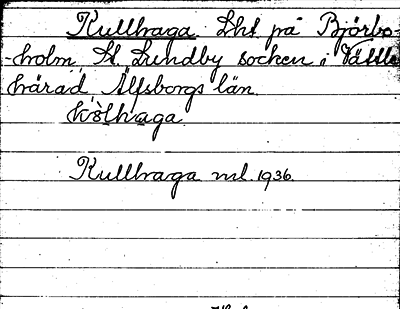 Kullhaga Lht på Björbo-
-holm, St. Lundby socken i Vättle
härad Älfsborgs län.
kòlhaga
Kullhaga ml. 1936.